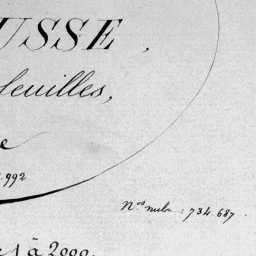 USSE,
feuilles,
e
.992
N.os mulr : 734.687.
à 2000.